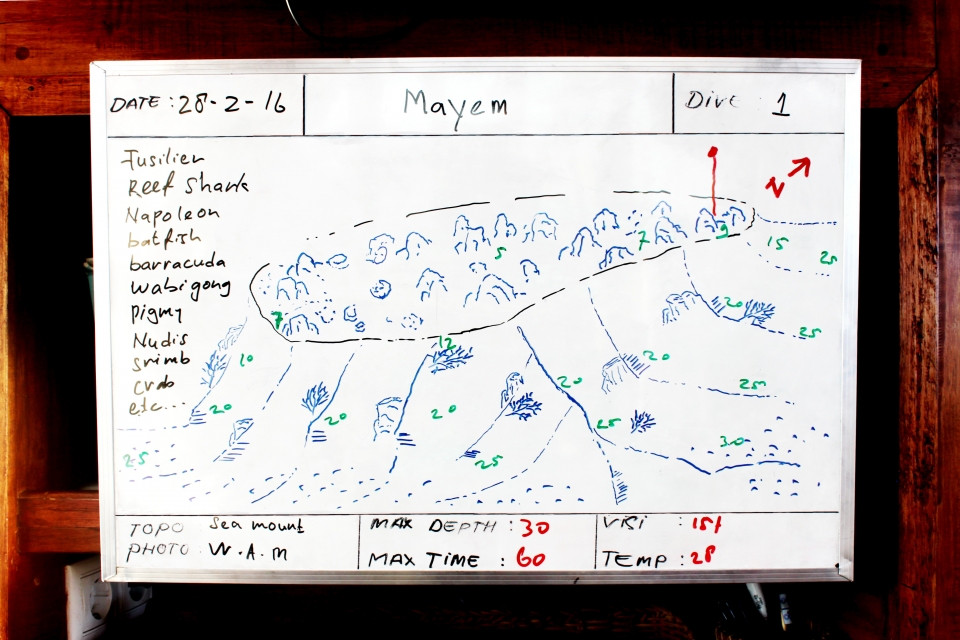 DATE : 28-2-16
Mayem
Dive : 1
Fusilier
Reef Shark
Napoleon
batfish
barracuda
Wabigong
Pigmy
Nudis
srimb
crab
etc...
N
5
7
9
15
25
7
12
20
25
10
20
20
20
25
20
25
20
25
30
25
TOPO Sea mount
PHOTO W.A.M
MAX DEPTH : 30
MAX TIME : 60
VISI : 15+
TEMP : 28